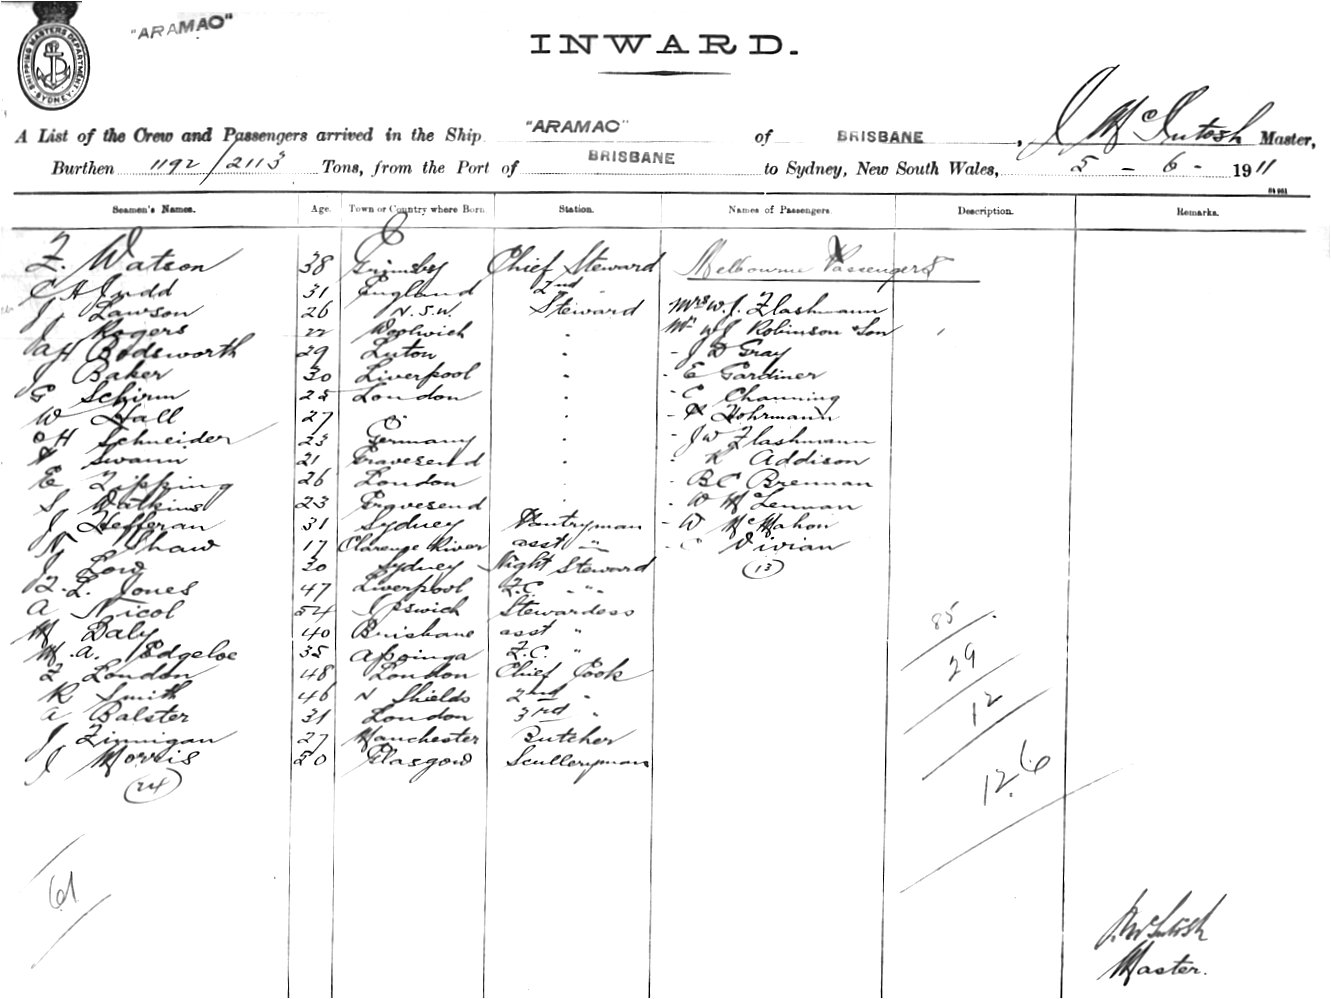 "ARAMAC"
SHIPPING MASTERS DEPARTMENT
SYDNEY
INWARD.
A List of the Crew and Passengers arrived in the Ship "ARAMAC" of BRISBANE, J McIntosh Master,
Burthen 1192/2113 Tons, from the Port of BRISBANE to Sydney, New South Wales, 5 - 6 - 1911
Seamen's Names. Age. Town or Country where Born. Station. Names of Passengers. Description. Remarks.
Melbourne Passengers
F. Watson 38 Grimsby Chief Steward
C H Judd 31 England 2nd "
J Lawson 26 N.S.W. Steward Mrs W. J. Flashmann
J Rogers 22 Woolwich " Mr W J Robinson & Son
A H Bodsworth 29 Luton " - J D Gray
J Baker 30 Liverpool " - E Gardiner
G Schirm 25 London " - C Channing
W Hall 27 " " - Hohrmann
H Schneider 23 Germany " - J W Flashmann
Swann 21 Gravesend " - R Addison
E Zipping 26 London " - B C Brennan
S Watkins 23 Gravesend " - W McLennan
J Hefferan 31 Sydney Pantryman - W McMahon
Shaw 17 Clarence River asst " - C Vivian
J Low 30 Sydney Night Steward (13)
F. L. Jones 47 Liverpool F.C. " "
A Nicol 54 Ipswich Stewardess
M Daly 40 Brisbane asst "
M. A. Edgeloe 35 F.C. "
F London 48 London Chief Cook
R Smith 46 N Shields 2nd "
A Balster 31 London 3rd "
J Finnigan 27 Manchester Butcher
J Morris 20 Glasgow Sculleryman
(24)
85
29
12
126
61
J. McIntosh
Master.